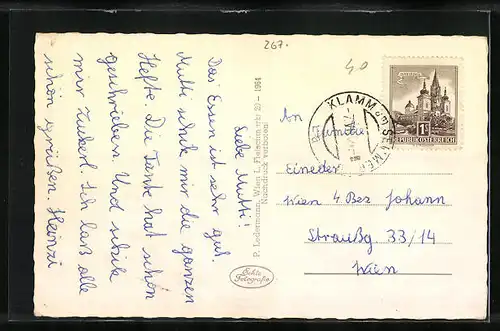 267.
40
Liebe Mutti!
Das Essen ist sehr gut.
Mutti schik mir die ganzen
Hefte. Die Tante hat schon
geschrieben. Und schik
mir Zuckerl. Ich laß alle
schön grüßen. Heinzi
P. Ledermann, Wien I, Fleischmarkt 20 - 1964
Nachdruck verboten!
Echte
Fotografie
KLAMM a. SEMMERING
1S
REPUBLIK ÖSTERREICH
An
Familie
Eineder
Wien 4 Bez Johann
Straußg. 33/14
Wien